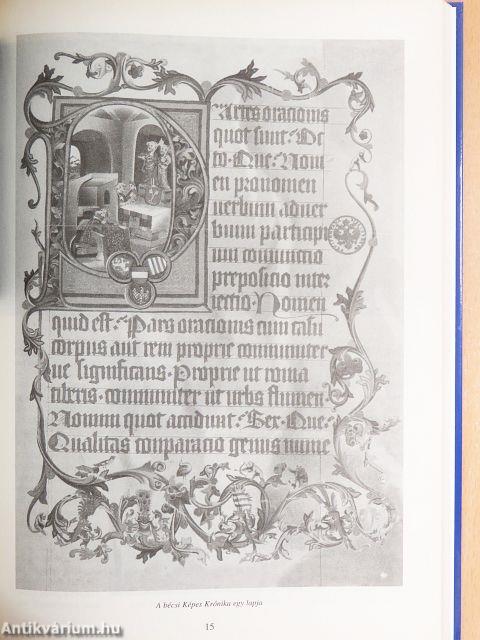 Partes oracionis
quot sunt· Oc
to· Que· Nom
en pronomen
verbum adver
bium particip
ium coniunctio
prepositio inter
iectio· Nomen
quid est· Pars oracionis cum casu
corpus aut rem proprie communiter
ve significans· Proprie ut roma
tiberis· communiter ut urbs flumen
Nomini quot accidunt· Sex· Que·
Qualitas conparacio genus nume
A bécsi Képes Krónika egy lapja
15
Antikvárium.hu